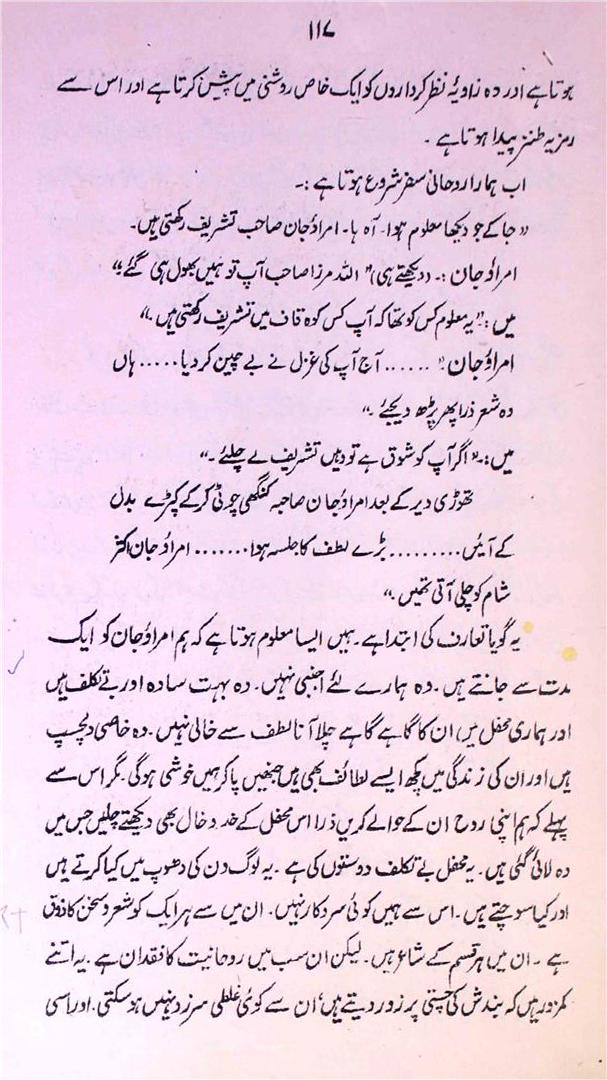 ۱۱۷
ہوتا ہے اور وہ زاویۂ نظر کرداروں کو ایک خاص روشنی میں پیش کرتا ہے اور اس سے
رمزیہ طنز پیدا ہوتا ہے ۔
اب ہمارا روحانی سفر شروع ہوتا ہے :۔
"جا کے جو دیکھا معلوم ہوا۔ آہ ہا۔ امراؤ جان صاحب تشریف رکھتی ہیں۔
امراؤ جان :۔ (دیکھتے ہی) "اللہ مرزا صاحب آپ تو ہمیں بھول ہی گئے"
میں :۔ "یہ معلوم کس کو تھا کہ آپ کس کوہ قاف میں تشریف رکھتی ہیں ۔"
امراؤ جان :" ...... آج آپ کی غزل نے بے چین کر دیا ..... ہاں
وہ شعر ذرا پھر پڑھ دیجئے ۔"
میں :۔ "اگر آپ کو شوق ہے تو وہیں تشریف لے چلئے ۔"
تھوڑی دیر کے بعد امراؤ جان صاحبہ کنگھی چوٹی کر کے کپڑے بدل
کے آئیں ......... بڑے لطف کا جلسہ ہوا ....... امراؤ جان اکثر
شام کو چلی آتی تھیں ۔"
یہ گویا تعارف کی ابتدا ہے ۔ ہمیں ایسا معلوم ہوتا ہے کہ ہم امراؤ جان کو ایک
مدت سے جانتے ہیں ۔ وہ ہمارے لئے اجنبی نہیں ۔ وہ بہت سادہ اور بے تکلف ہیں
اور ہماری محفل میں ان کا گاہے گاہے چلا آنا لطف سے خالی نہیں ۔ وہ خاصی دلچسپ
ہیں اور ان کی زندگی میں کچھ ایسے لطائف بھی ہیں جنھیں پا کر ہمیں خوشی ہوگی ۔ مگر اس سے
پہلے کہ ہم اپنی روح ان کے حوالے کریں ذرا اس محفل کے خد و خال بھی دیکھتے چلیں جس میں
وہ لائی گئی ہیں ۔ یہ محفل بے تکلف دوستوں کی ہے ۔ یہ لوگ دن کی دھوپ میں کیا کرتے ہیں
اور کیا سوچتے ہیں ۔ اس سے ہمیں کوئی سروکار نہیں ۔ ان میں سے ہر ایک کو شعر و سخن کا ذوق
ہے ۔ ان میں ہر قسم کے شاعر ہیں ۔ لیکن ان سب میں روحانیت کا فقدان ہے ۔ یہ اتنے
کمزور ہیں کہ بندش کی چستی پر زور دیتے ہیں ، ان سے کوئی غلطی سرزد نہیں ہو سکتی ۔ اور اسی